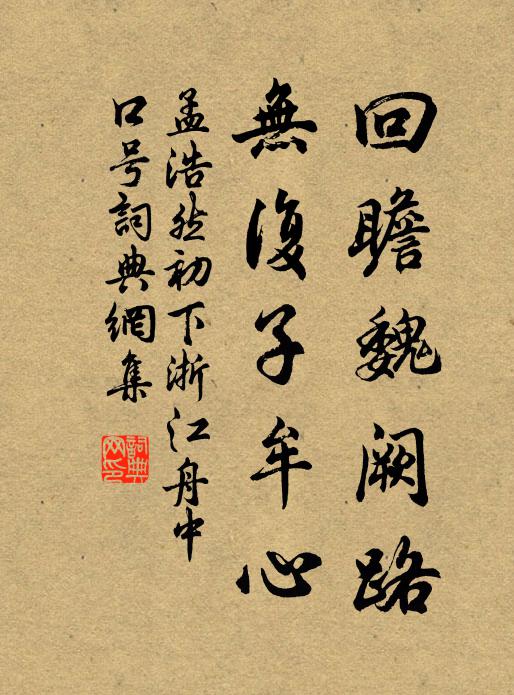 回瞻魏阙路
無復子牟心
孟浩然初下浙江舟中
口号詞典網集
詞典網印